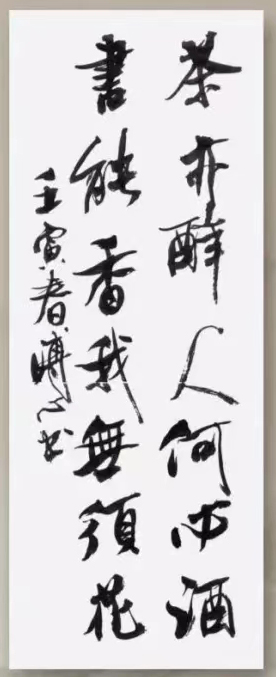 茶亦醉人何必酒
書能香我無須花
壬寅春书